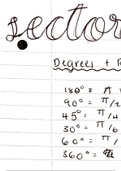 sector
Degrees + R
180° = π
90° = π/2
45° = π/4
30° = π/6
60° = π/
360° =